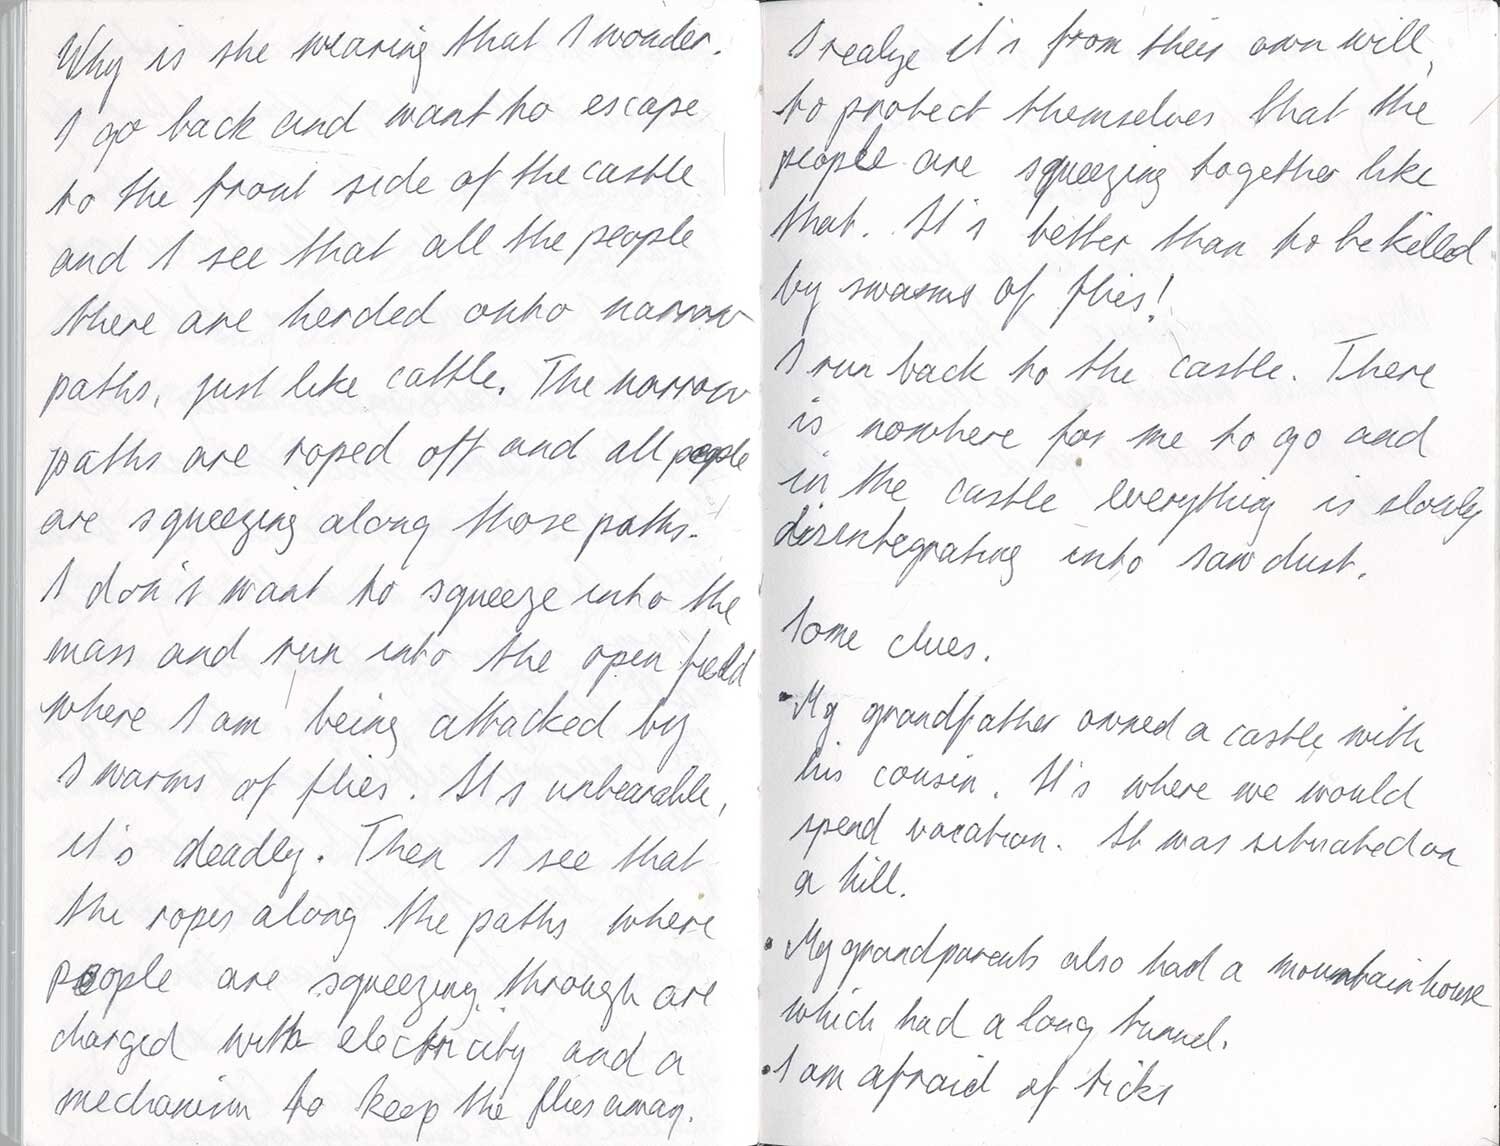 Why is she wearing that I wonder.
I go back and want to escape
to the front side of the castle
and I see that all the people
there are herded onto narrow
paths, just like cattle. The narrow
paths are roped off and all people
are squeezing along those paths.
I don't want to squeeze into the
mass and run into the open field
where I am being attacked by
swarms of flies. It's unbearable,
it's deadly. Then I see that
the ropes along the paths where
people are squeezing through are
charged with electricity and a
mechanism to keep the flies away.
I realize it's from their own will,
to protect themselves that the
people are squeezing together like
that. It's better than to be killed
by swarms of flies!
I run back to the castle. There
is nowhere for me to go and
in the castle everything is slowly
disintegrating into sawdust.
Some clues.
• My grandfather owned a castle with
his cousin. It's where we would
spend vacation. It was situated on
a hill.
• My grandparents also had a mountain house
which had a long tunnel.
• I am afraid of ticks